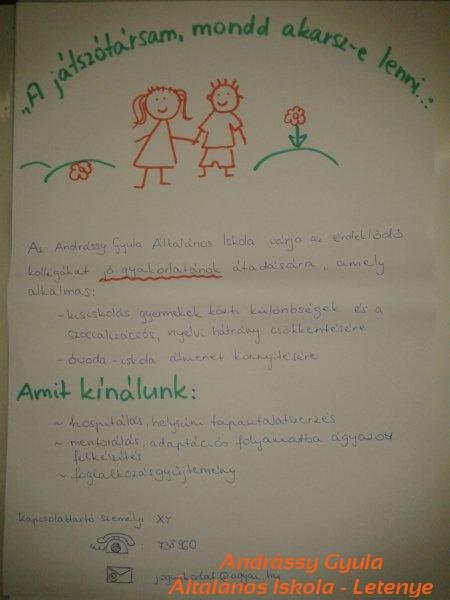 „A játszótársam, mondd akarsz-e lenni...:
Az Andrássy Gyula Általános Iskola várja az érdeklődő
kollégákat jó gyakorlatának átadására, amely
alkalmas:
- kisiskolás gyermekek közti különbségek és a
szocializációs, nyelvi hátrány csökkentésére
- óvoda-iskola átmenet könnyítésére
Amit kínálunk:
~ hospitálás, helyszíni tapasztalatszerzés
~ mentorálás, adaptációs folyamatba ágyazott
felkészítés
~ foglalkozásgyűjtemény
Kapcsolattartó személy: XY
: 738960
: @agyai.hu
Andrássy Gyula
Általános Iskola - Letenye